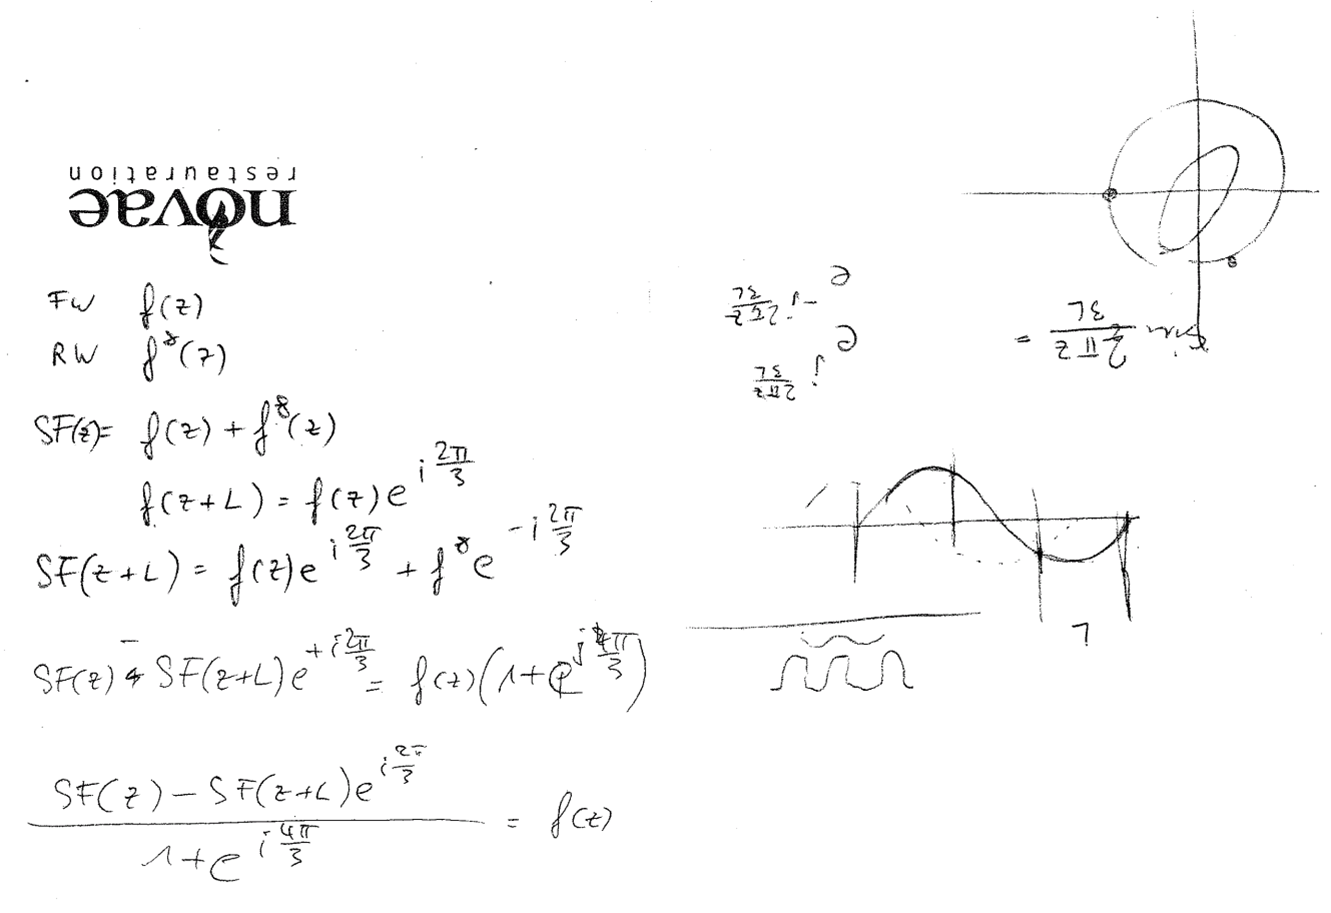 novae
restauration
FW f(z)
RW f*(z)
SF(z)= f(z) + f*(z)
f(z+L) = f(z)e^{i 2π/3}
SF(z+L) = f(z)e^{i 2π/3} + f* e^{-i 2π/3}
SF(z) - SF(z+L)e^{+i 2π/3} = f(z)(1+e^{i 4π/3})
(SF(z) - SF(z+L)e^{i 2π/3}) / (1+e^{i 4π/3}) = f(z)
e^{i 2πz/3L}
e^{-i 2πz/3L}
= 2πz/3L
L